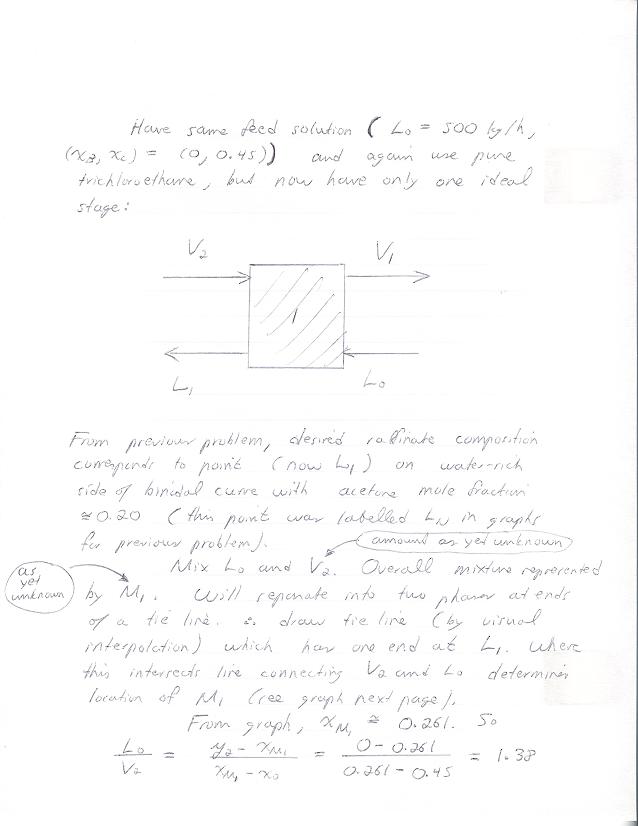 Have same feed solution (L₀ = 500 kg/h,
(x_B, x_C) = (0, 0.45)) and again use pure
trichloroethane, but now have only one ideal
stage:
V₂ V₁
1
L₁ L₀
From previous problem, desired raffinate composition
corresponds to point (now L₁) on water-rich
side of binodal curve with acetone mole fraction
≅ 0.20 (this point was labelled L_N in graphs
for previous problem).
amount as yet unknown
Mix L₀ and V₂. Overall mixture represented
as
yet
unknown
by M₁. Will separate into two phases at ends
of a tie line. ∴ draw tie line (by visual
interpolation) which has one end at L₁. Where
this intersects line connecting V₂ and L₀ determines
location of M₁ (see graph next page).
From graph, x_M₁ ≅ 0.261. So
L₀/V₂ = (y₂ - x_M₁)/(x_M₁ - x₀) = (0 - 0.261)/(0.261 - 0.45) = 1.38